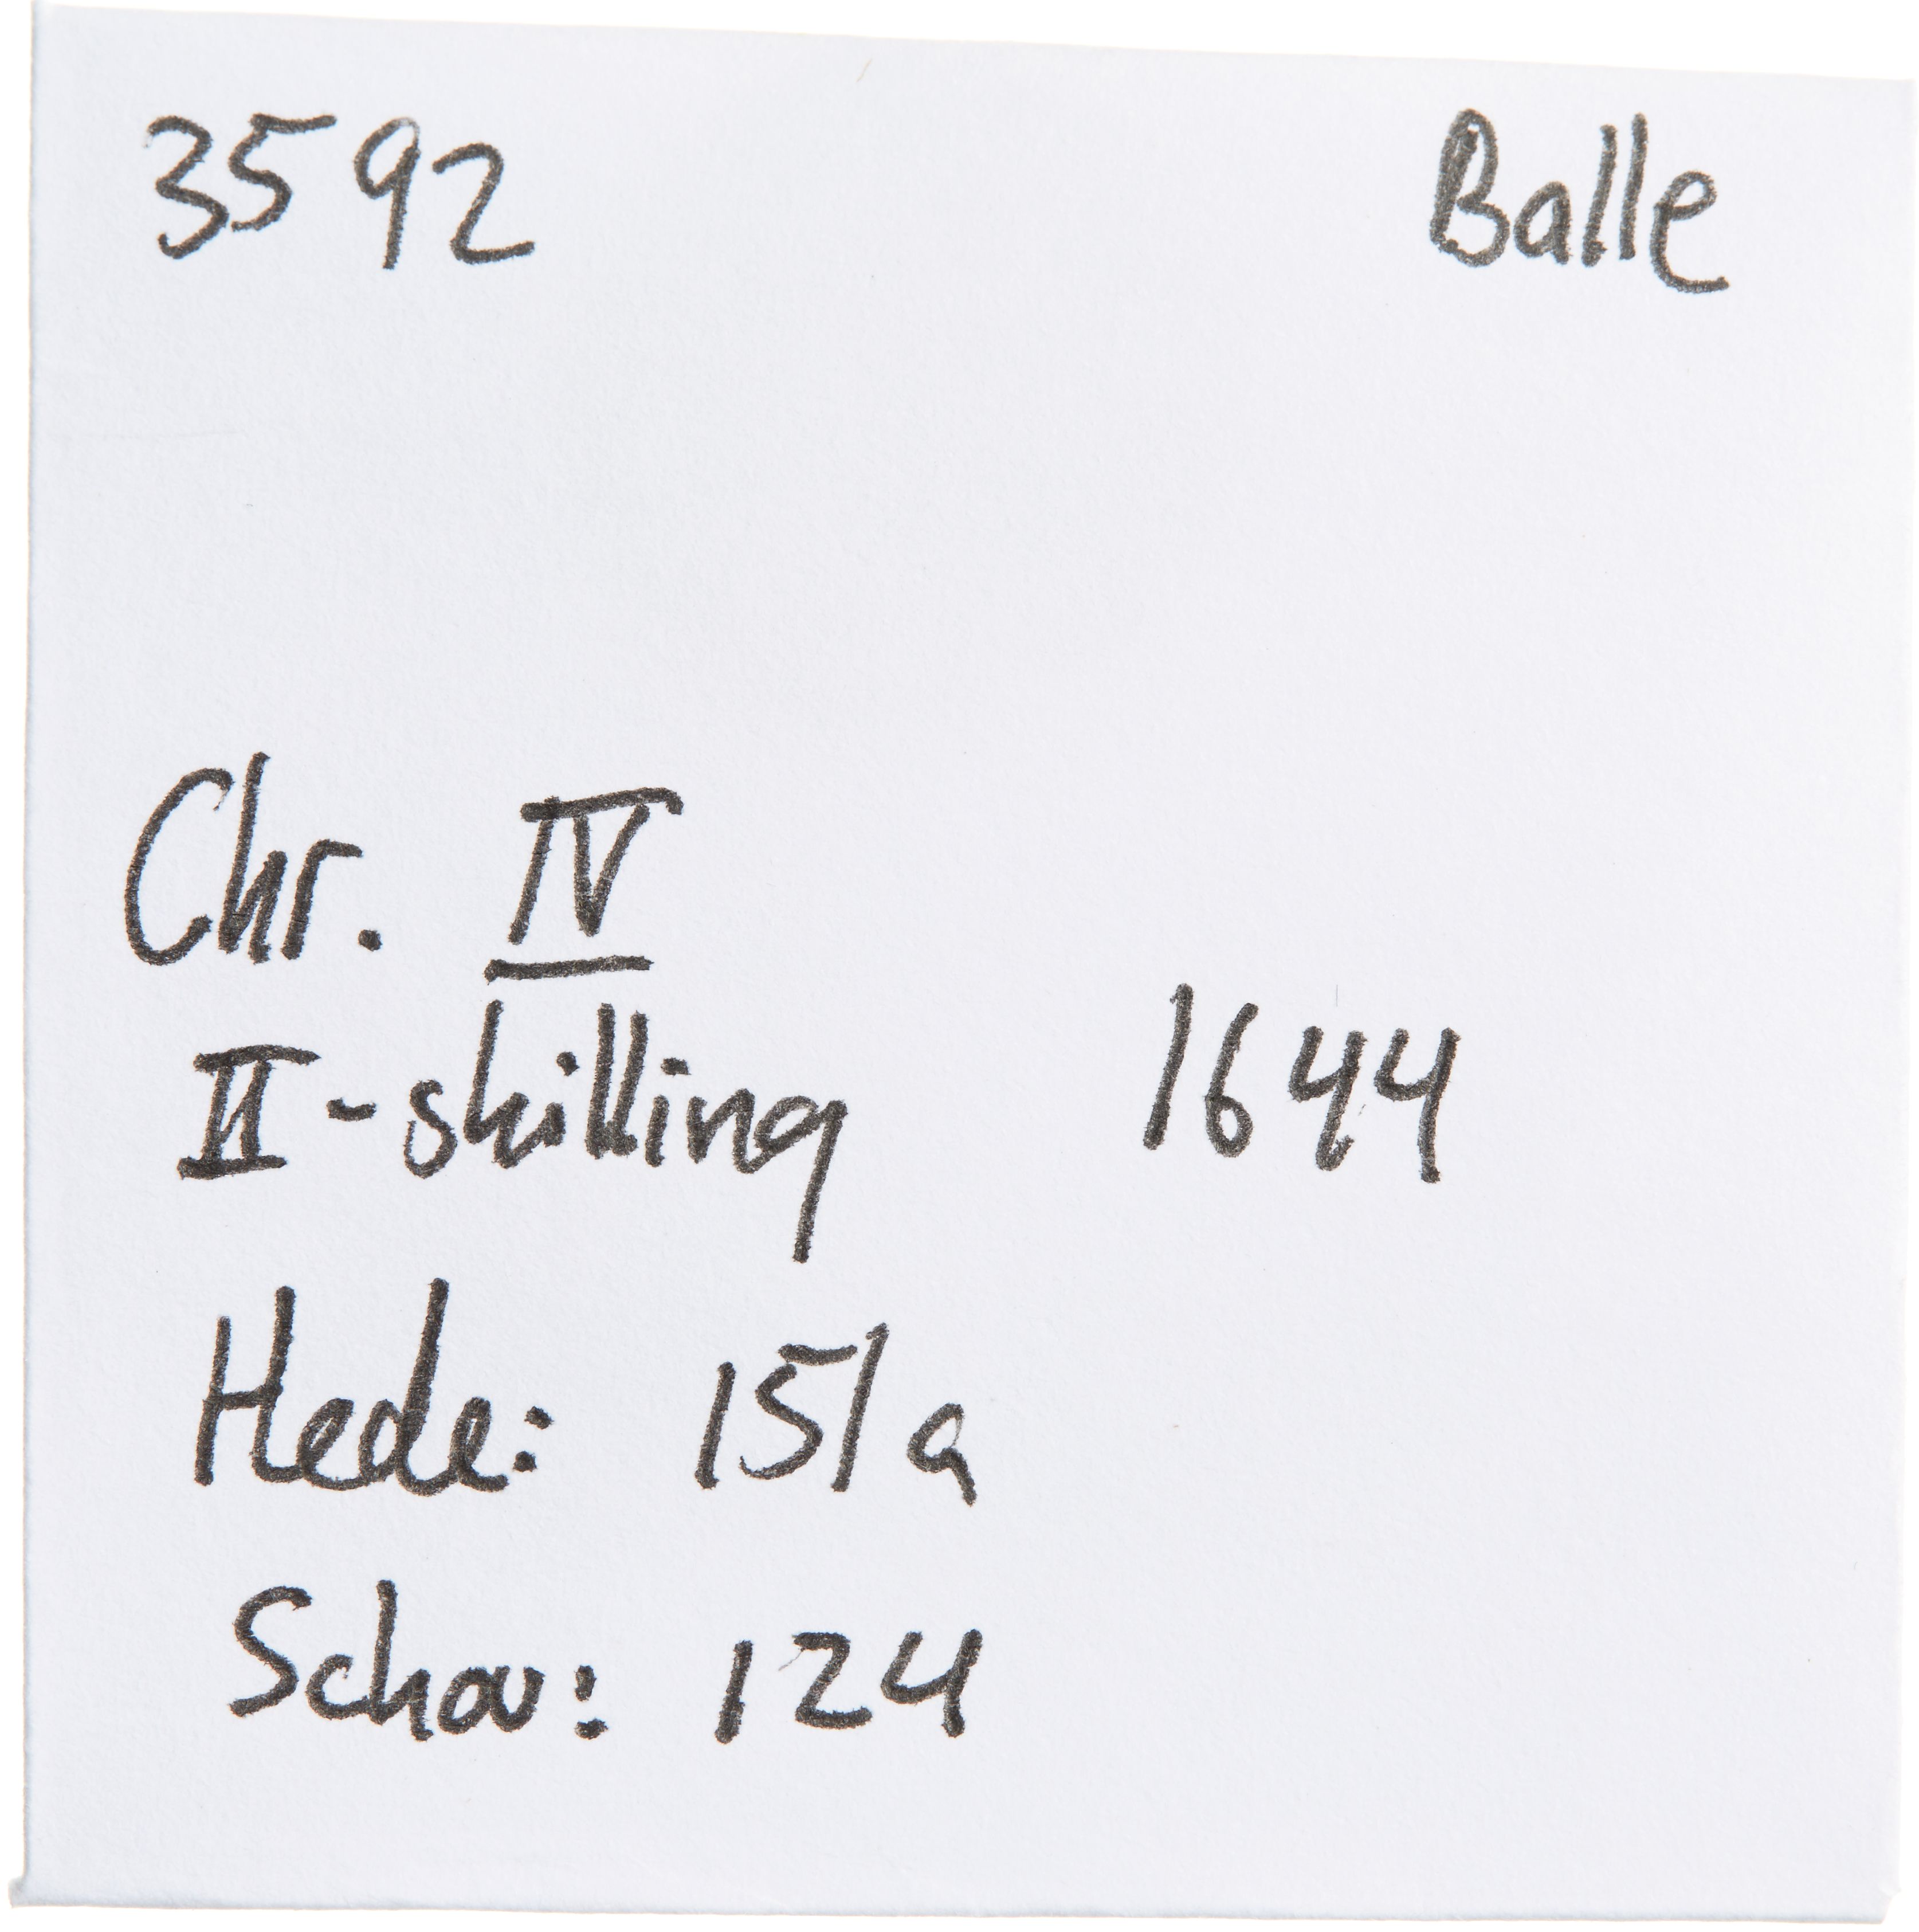 3592 Balle
Chr. IV
II-skilling 1644
Hede: 151a
Schou: 124